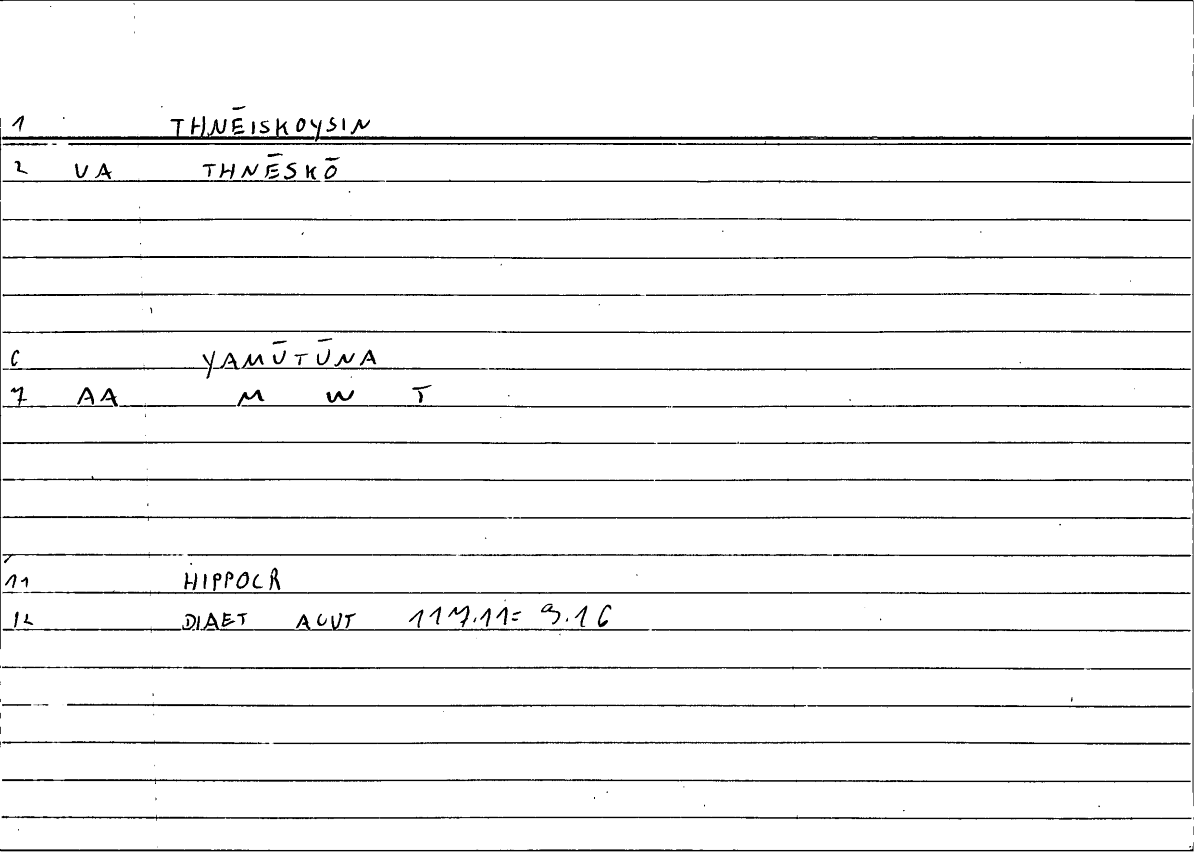 1 THNĒISKOYSIN
2 VA THNĒSKŌ
6 YAMŪTŪNA
7 AA M W T
11 HIPPOCR
12 DIAET ACUT 117.11= 9.16